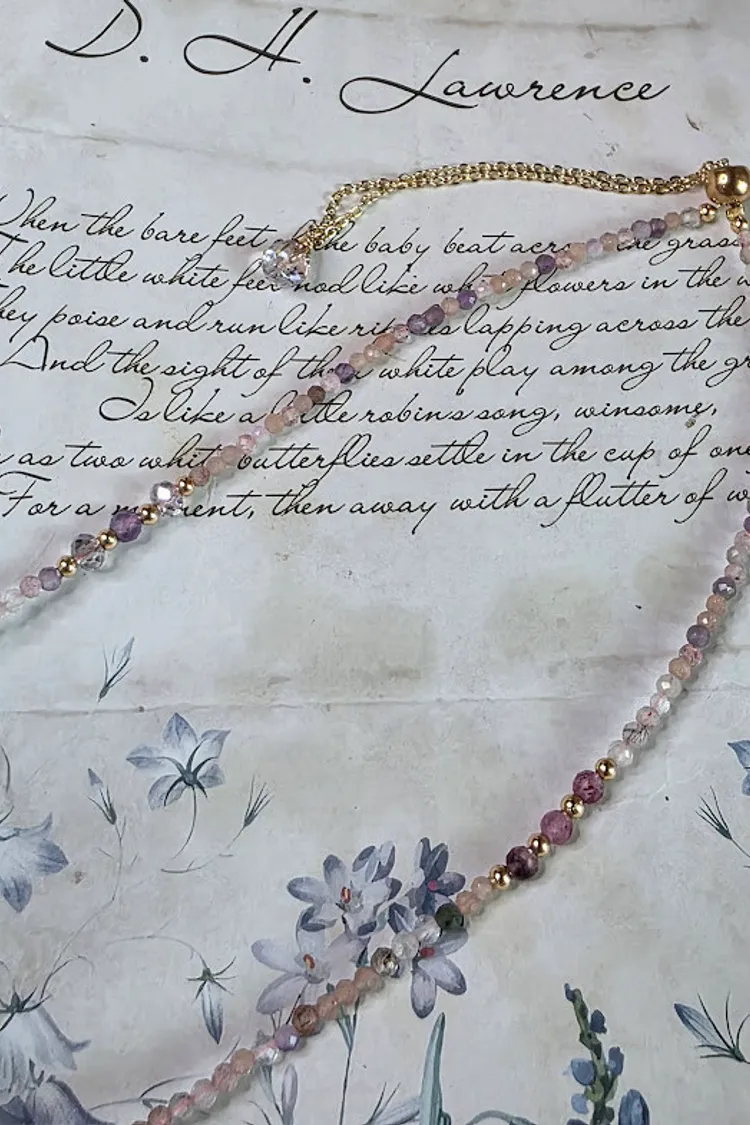 D. H. Lawrence
When the bare feet the baby beat the grass
The little white feet nod like flowers in the
They poise and run like lapping across the
And the sight of white play among the
Is like a little robin's song, winsome,
as two white butterflies settle in the cup of one
For a moment, then away with a flutter of